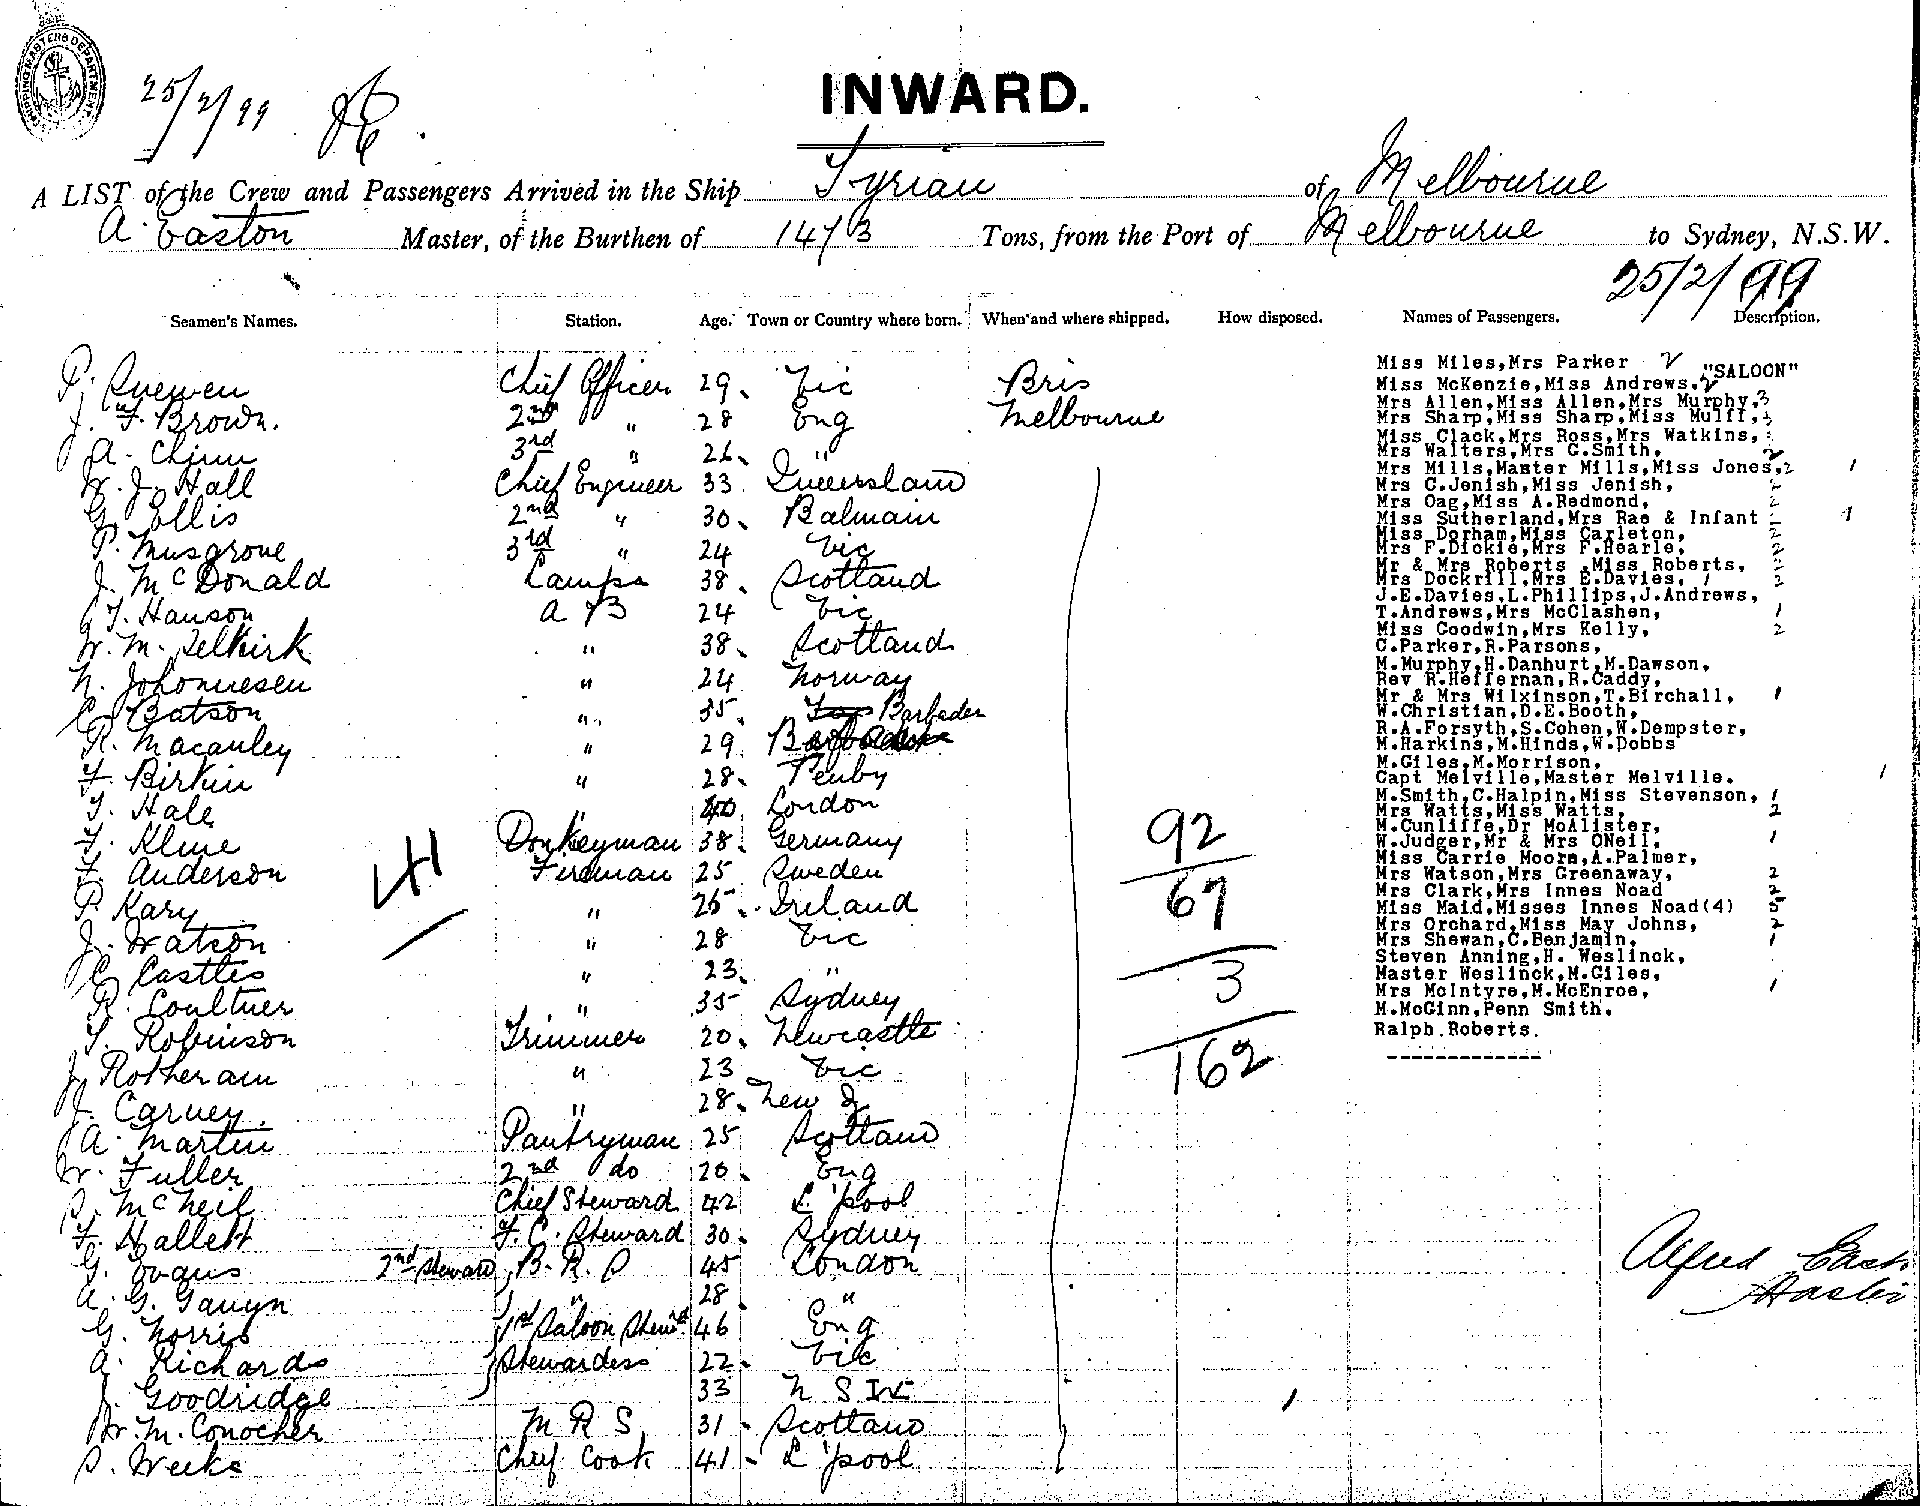 SHIPPING MASTERS DEPARTMENT
25/2/99
INWARD.
A LIST of the Crew and Passengers Arrived in the Ship Tyrian of Melbourne
A. Easton Master, of the Burthen of 1473 Tons, from the Port of Melbourne to Sydney, N.S.W.
25/2/99
Seamen's Names. Station. Age. Town or Country where born. When and where shipped. How disposed. Names of Passengers. Description.
Chief Officer 29. Vic Bris
J. F. Brown. 2nd " 28 Eng Melbourne
A. Chinn 3rd " 26. "
W. J. Hall Chief Engineer 33 Queensland
G. Ellis 2nd " 30. Balmain
P. Musgrove 3rd " 24 Vic
J. McDonald Lamps 38. Scotland
T. Hanson A B 24 Vic
W. M. Selkirk " 38. Scotland
N. Johannesen " 24 Norway
C. Batson " 35. Barbados
R. Macauley " 29
F. Birkin " 28. Penby
T. Hale " 40 London
F. Kline Donkeyman 38. Germany
F. Anderson Fireman 25 Sweden
P. Kary " 25. Ireland
J. Watson " 28 Vic
C. Castles " 23. "
R. Coultner " 35 Sydney
T. Robinson Trimmer 20. Newcastle
J. Rotheram " 23 Vic
J. Carney. " 28. New Z
A. Martin Pantryman 25 Scotland
W. Fuller 2nd do 20. Eng
S. McNeil Chief Steward 42 L'pool
F. Hallett F. C. Steward 30. Sydney
G. Evans 2nd Steward B. R. P 45 London
A. G. Gauyn " 28 "
G. Norris 1st Saloon Stewd 46 Eng
A. Richards Stewardess 22. Vic
J. Goodridge 33 N S W
W. M. Conocher M R S 31. Scotland
S. Weeks Chief Cook 41. L'pool
92
67
3
162
Miss Miles,Mrs Parker 2
"SALOON"
Miss McKenzie,Miss Andrews, 2
Mrs Allen,Miss Allen,Mrs Murphy, 3
Mrs Sharp,Miss Sharp,Miss Mulff, 3
Miss Clack,Mrs Ross,Mrs Watkins,
Mrs Walters,Mrs G.Smith, 2
Mrs Mills,Master Mills,Miss Jones, 2 1
Mrs C.Jenish,Miss Jenish, 2
Mrs Oag,Miss A.Redmond, 2
Miss Sutherland,Mrs Rae & Infant 2 1
Miss Dorham,Miss Carleton, 2
Mrs F.Dickie,Mrs F.Hearle, 2
Mr & Mrs Roberts ,Miss Roberts, 2
Mrs Dockrill,Mrs E.Davies, 2
J.E.Davies,L.Phillips,J.Andrews,
T.Andrews,Mrs McClashen, 1
Miss Goodwin,Mrs Kelly, 2
C.Parker,R.Parsons,
M.Murphy,H.Danhurt,M.Dawson,
Rev R.Heffernan,R.Caddy,
Mr & Mrs Wilkinson,T.Birchall, 1
W.Christian,D.E.Booth,
R.A.Forsyth,S.Cohen,W.Dempster,
M.Harkins,M.Hinds,W.Dobbs
M.Giles,M.Morrison,
Capt Melville,Master Melville. 1
M.Smith,C.Halpin,Miss Stevenson, 1
Mrs Watts,Miss Watts, 2
M.Cunliffe,Dr McAlister,
W.Judger,Mr & Mrs ONeil, 1
Miss Carrie Moore,A.Palmer,
Mrs Watson,Mrs Greenaway, 2
Mrs Clark,Mrs Innes Noad 2
Miss Maid,Misses Innes Noad(4) 5
Mrs Orchard,Miss May Johns, 2
Mrs Shewan,C.Benjamin, 1
Steven Anning,H. Weslinck,
Master Weslinck,M.Giles,
Mrs McIntyre,M.McEnroe, 1
M.McGinn,Penn Smith.
Ralph.Roberts.
Alfred East
Master